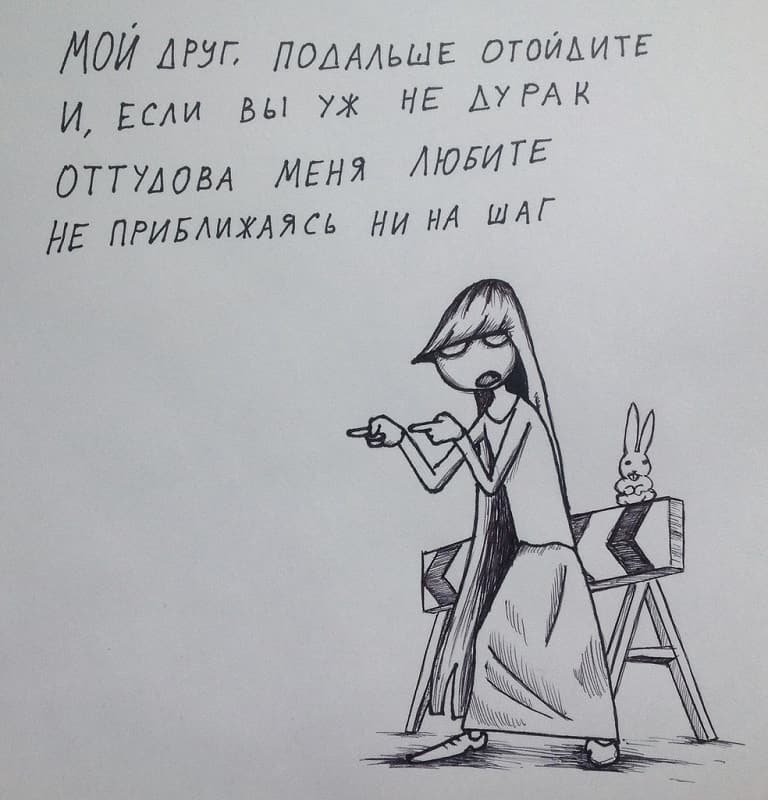 МОЙ ДРУГ, ПОДАЛЬШЕ ОТОЙДИТЕ
И, ЕСЛИ ВЫ УЖ НЕ ДУРАК
ОТТУДОВА МЕНЯ ЛЮБИТЕ
НЕ ПРИБЛИЖАЯСЬ НИ НА ШАГ